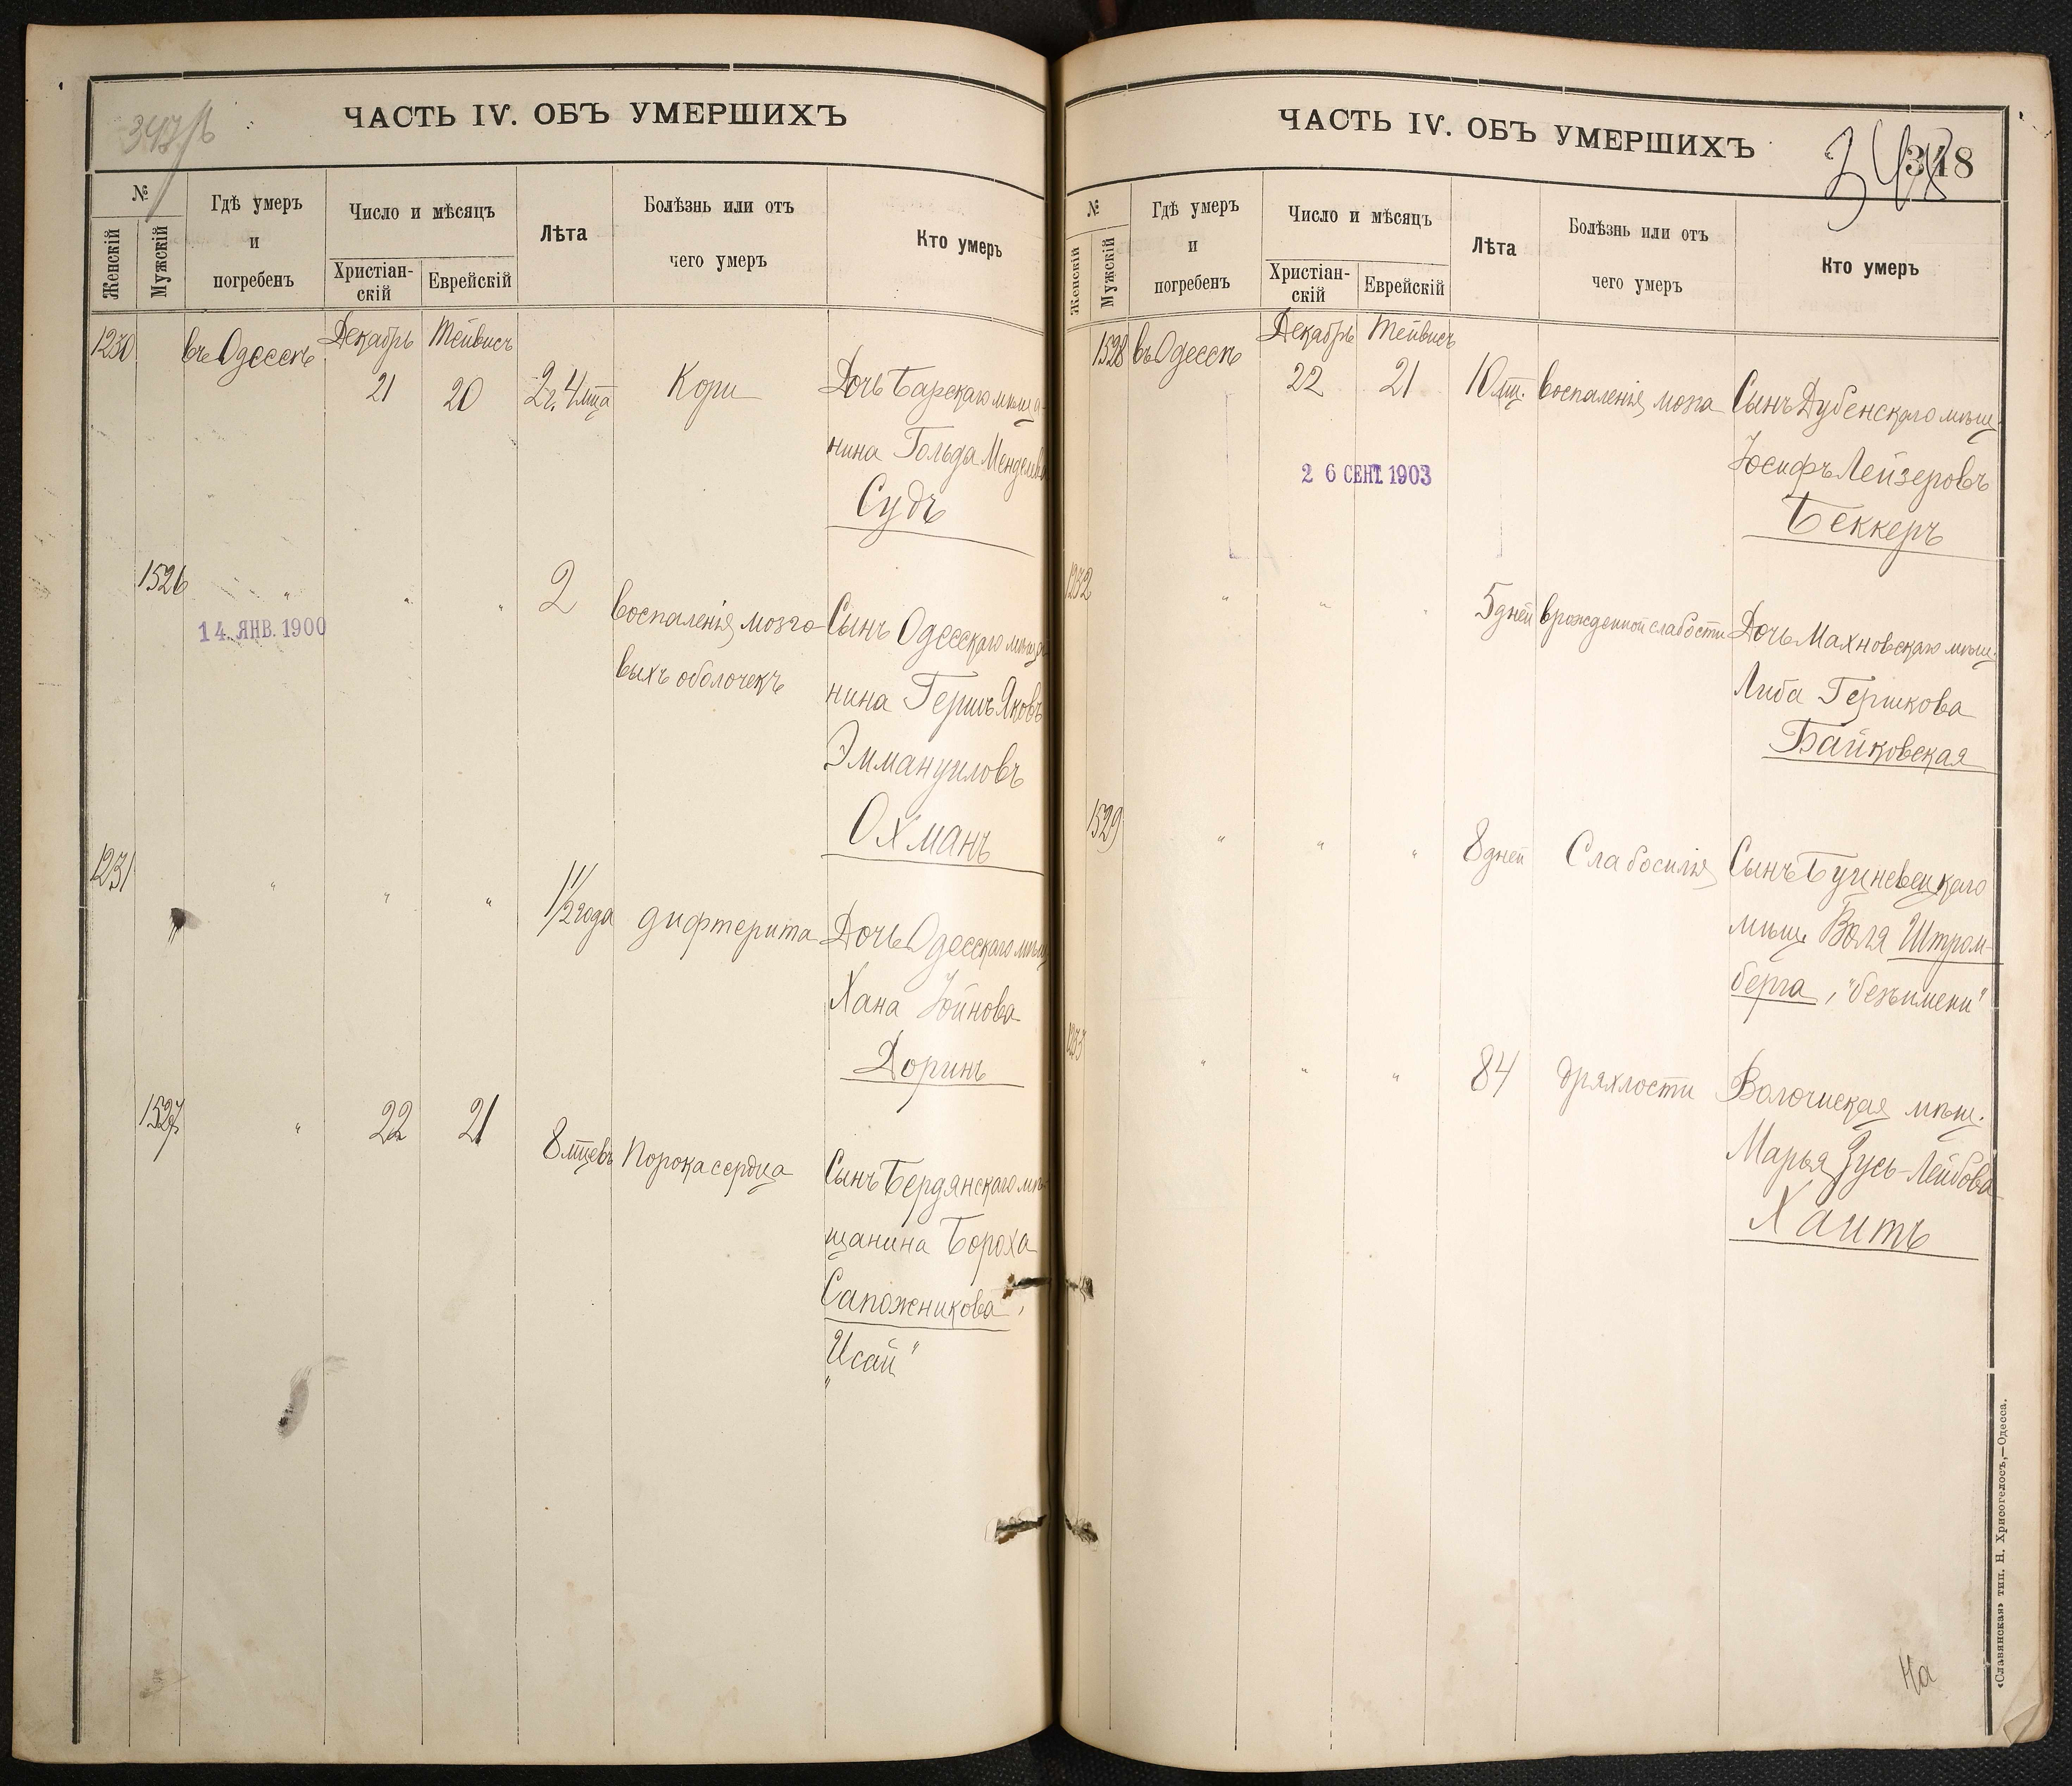 347/б
ЧАСТЬ IV. ОБЪ УМЕРШИХЪ
№
Женскій
Мужскій
Гдѣ умеръ
и
погребенъ
Число и мѣсяцъ
Христіан-
скій
Еврейскій
Лѣта
Болѣзнь или отъ
чего умеръ
Кто умеръ
1230 въ Одессѣ Декабрь Тейвисъ
21 20 2г. 4 мца Кори Дочь Барскаго мѣща-
нина Гольда Менделева
Судъ
1526 " " " 2 Воспаленія мозго- Сынъ Одесскаго мѣща
14. ЯНВ. 1900
выхъ оболочекъ нина Гершъ Яковъ
Эммануиловъ
Охманъ
1231 " " " 1 1/2 года дифтерита Дочь Одесскаго мѣщ
Хана Іойнова
Доринъ
1527 " 22 21 8 мцевъ Порока сердца Сынъ Бердянскаго мѣ-
щанина Бороха
Сапожникова,
"Исай"
ЧАСТЬ IV. ОБЪ УМЕРШИХЪ
348
318
№
Женскій
Мужскій
Гдѣ умеръ
и
погребенъ
Число и мѣсяцъ
Христіан-
скій
Еврейскій
Лѣта
Болѣзнь или отъ
чего умеръ
Кто умеръ
1528 въ Одессѣ Декабрь Тейвисъ
22 21 10 мц. Воспаленія мозга Сынъ Дубенскаго мѣщ.
Іосифъ Лейзеровъ
2 6 СЕНТ. 1903
Беккеръ
1232 " " " 5 дней врожденной слабости Дочь Махновскаго мѣщ.
Либа Гершкова
Байковская
1529 " " " 8 дней Слабосилія Сынъ
мѣщ. Воля Штром-
берга, "безъ имени"
1233 " " " 84 дряхлости Волочиская мѣщ.
Марья Зусь-Лейбова
Хаитъ
На
«Славянская» тип. Н. Хрисогелосъ,—Одесса.